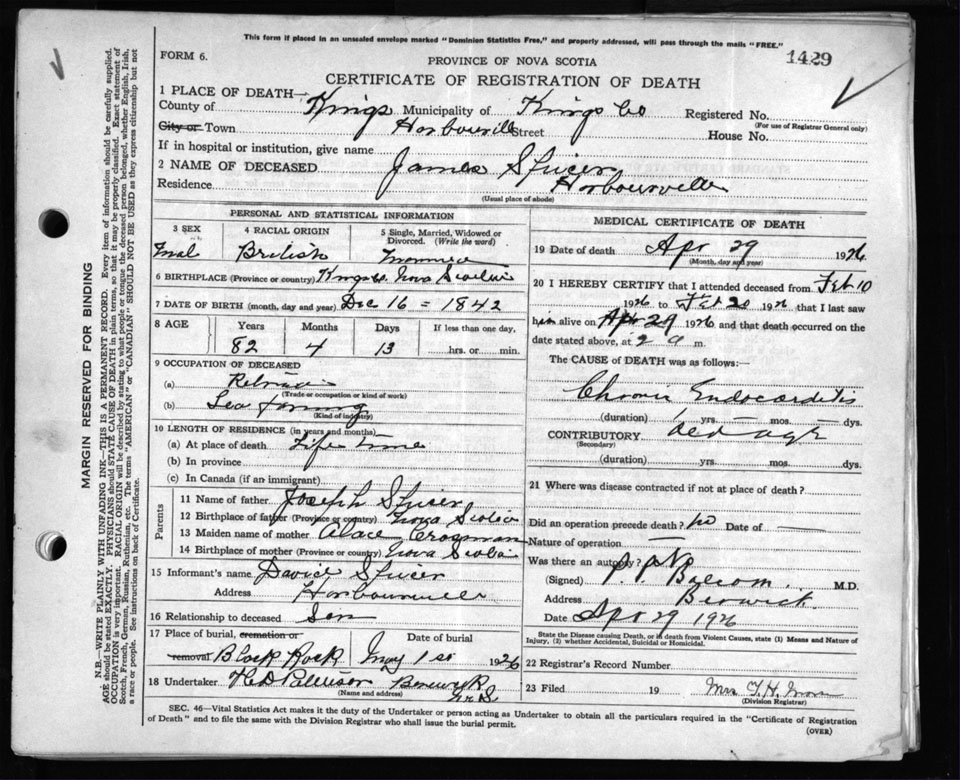 This form if placed in an unsealed envelope marked "Dominion Statistics Free," and properly addressed, will pass through the mails "FREE."
FORM 6.
PROVINCE OF NOVA SCOTIA
1429
CERTIFICATE OF REGISTRATION OF DEATH
1 PLACE OF DEATH—
County of Kings Municipality of Kings Co Registered No.
(For use of Registrar General only)
City or Town Harbourville Street House No.
If in hospital or institution, give name
2 NAME OF DECEASED James Spicer
Residence Harbourville
(Usual place of abode)
PERSONAL AND STATISTICAL INFORMATION
3 SEX 4 RACIAL ORIGIN 5 Single, Married, Widowed or Divorced. (Write the word)
Mal British
6 BIRTHPLACE (Province or country) Kings Co. Nova Scotia
7 DATE OF BIRTH (month, day and year) Dec 16 = 1842
8 AGE Years Months Days If less than one day,
82 4 13 hrs. or min.
9 OCCUPATION OF DECEASED
(a)
(Trade or occupation or kind of work)
(b)
(Kind of industry)
10 LENGTH OF RESIDENCE (in years and months)
(a) At place of death Life Time
(b) In province
(c) In Canada (if an immigrant)
Parents
11 Name of father Joseph Spicer
12 Birthplace of father (Province or country) Nova Scotia
13 Maiden name of mother
14 Birthplace of mother (Province or country) Nova Scotia
15 Informant's name David Spicer
Address Harbourville
16 Relationship to deceased Son
17 Place of burial, cremation or Date of burial
removal Black Rock May 1st 1926
18 Undertaker Berwick
(Name and address) N.S.
MEDICAL CERTIFICATE OF DEATH
19 Date of death Apr 29 1926
(Month, day and year)
20 I HEREBY CERTIFY that I attended deceased from Feb 10
1926 to Feb 20 1926 that I last saw
him alive on Apr 29 1926 and that death occurred on the
date stated above, at 2 a m.
The CAUSE of DEATH was as follows:
Chronic Endocarditis
(duration) 1 yrs. — mos. — dys.
CONTRIBUTORY old age
(Secondary)
(duration) yrs. mos. dys.
21 Where was disease contracted if not at place of death?
Did an operation precede death? no Date of —
Nature of operation —
Was there an autopsy? No
(Signed) Balcom M.D.
Address Berwick
Date Apr 29 1926
State the Disease causing Death, or in death from Violent Causes, state (1) Means and Nature of Injury, (2) whether Accidental, Suicidal or Homicidal.
22 Registrar's Record Number
23 Filed 19 Mrs T. H.
(Division Registrar)
SEC. 46—Vital Statistics Act makes it the duty of the Undertaker or person acting as Undertaker to obtain all the particulars required in the "Certificate of Registration
of Death" and to file the same with the Division Registrar who shall issue the burial permit.
(OVER)
5
MARGIN RESERVED FOR BINDING
N.B.—WRITE PLAINLY WITH UNFADING INK—THIS IS A PERMANENT RECORD. Every item of information should be carefully supplied.
AGE should be stated EXACTLY. PHYSICIANS should STATE CAUSE OF DEATH in plain terms, so that it may be properly classified. Exact statement of
OCCUPATION is very important. RACIAL ORIGIN will be described by stating to what people or tongue the deceased person belonged, whether English, Irish,
Scotch, French, German, Russian, Ruthenian, etc. The terms "AMERICAN" or "CANADIAN" SHOULD NOT BE USED as they express citizenship but not
a race or people. See instructions on back of Certificate.